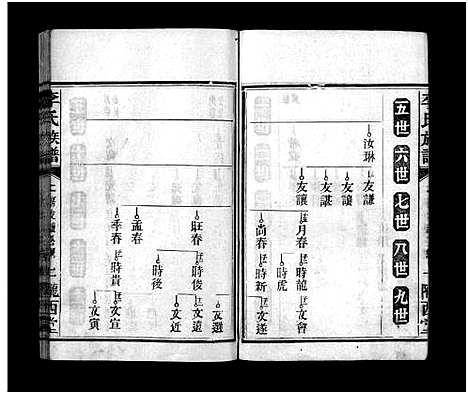 李氏族譜
隴西堂
五世 六世 七世 八世 九世
汝琳
友謙
友讓
友諶
友讓
月春
時龍
文會
尚春
時新
文遂
時虎
旺春
時俊
文選
文遠
文近
時後
孟春
季春
時貴
文宣
文寅
李氏族譜
隴西堂